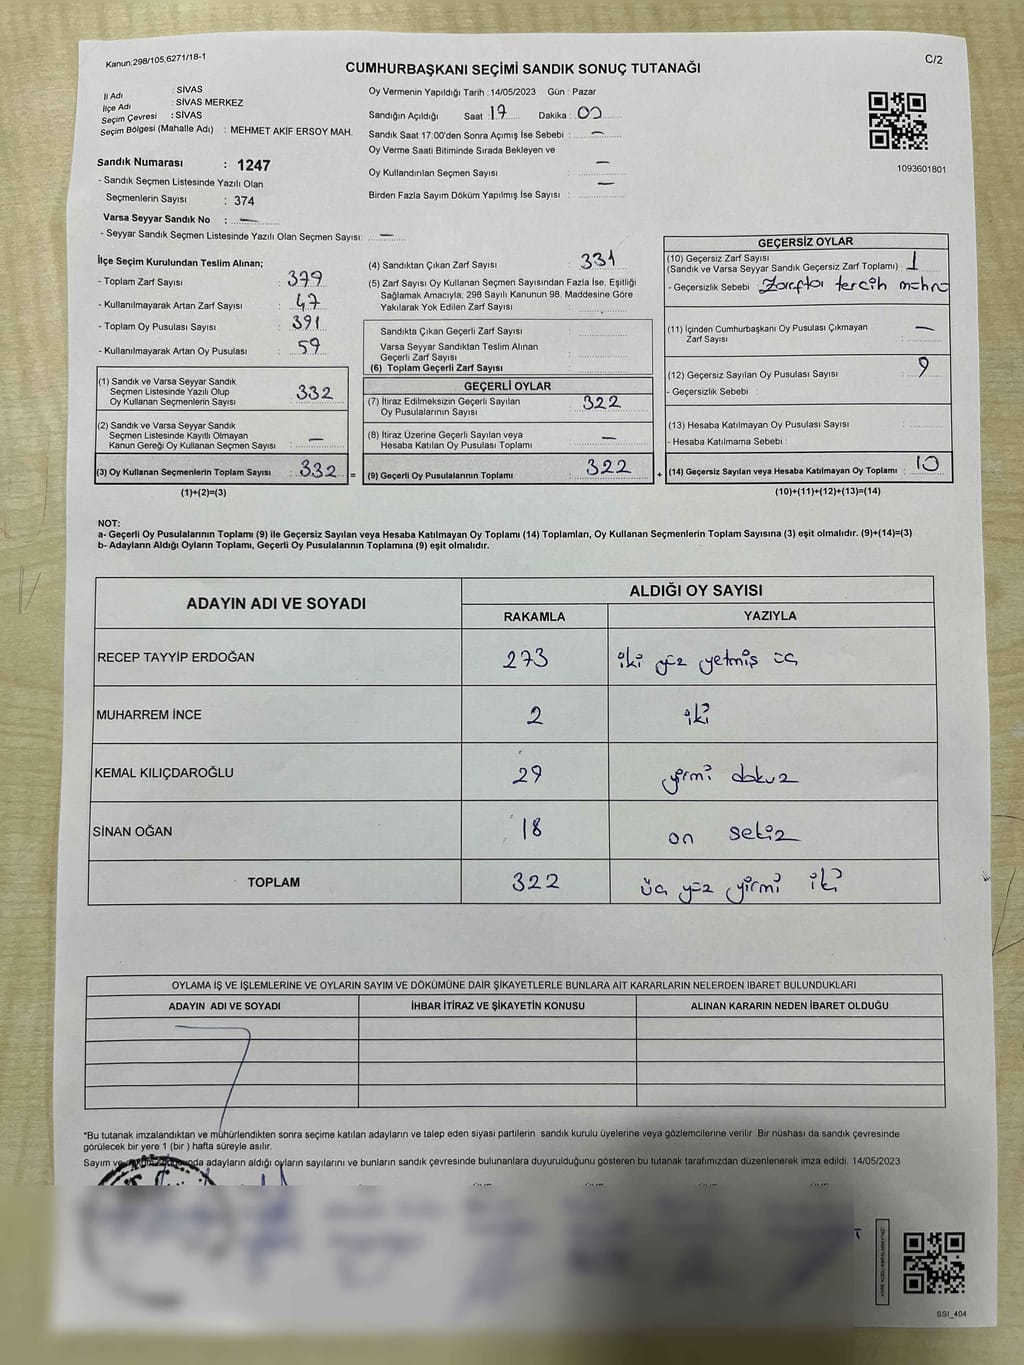 Kanun;298/105;6271/18-1
C/2
CUMHURBAŞKANI SEÇİMİ SANDIK SONUÇ TUTANAĞI
İl Adı : SİVAS
İlçe Adı : SİVAS MERKEZ
Seçim Çevresi : SİVAS
Seçim Bölgesi (Mahalle Adı) : MEHMET AKİF ERSOY MAH.
Oy Vermenin Yapıldığı Tarih : 14/05/2023 Gün : Pazar
Sandığın Açıldığı Saat : 17 Dakika : 00
Sandık Saat 17:00'den Sonra Açımış İse Sebebi : —
Oy Verme Saati Bitiminde Sırada Bekleyen ve
Oy Kullandırılan Seçmen Sayısı : —
Birden Fazla Sayım Döküm Yapılmış İse Sayısı : —
1093601801
Sandık Numarası : 1247
- Sandık Seçmen Listesinde Yazılı Olan
Seçmenlerin Sayısı : 374
Varsa Seyyar Sandık No : —
- Seyyar Sandık Seçmen Listesinde Yazılı Olan Seçmen Sayısı: —
İlçe Seçim Kurulundan Teslim Alınan;
- Toplam Zarf Sayısı : 379
- Kullanılmayarak Artan Zarf Sayısı : 47
- Toplam Oy Pusulası Sayısı : 391
- Kullanılmayarak Artan Oy Pusulası : 59
(1) Sandık ve Varsa Seyyar Sandık
Seçmen Listesinde Yazılı Olup
Oy Kullanan Seçmenlerin Sayısı : 332
(2) Sandık ve Varsa Seyyar Sandık
Seçmen Listesinde Kayıtlı Olmayan
Kanun Gereği Oy Kullanan Seçmen Sayısı : —
(3) Oy Kullanan Seçmenlerin Toplam Sayısı : 332 =
(1)+(2)=(3)
(4) Sandıktan Çıkan Zarf Sayısı : 331
(5) Zarf Sayısı Oy Kullanan Seçmen Sayısından Fazla İse, Eşitliği
Sağlamak Amacıyla; 298 Sayılı Kanunun 98. Maddesine Göre
Yakılarak Yok Edilen Zarf Sayısı :
Sandıkta Çıkan Geçerli Zarf Sayısı :
Varsa Seyyar Sandıktan Teslim Alınan
Geçerli Zarf Sayısı :
(6) Toplam Geçerli Zarf Sayısı :
GEÇERLİ OYLAR
(7) İtiraz Edilmeksizin Geçerli Sayılan
Oy Pusulalarının Sayısı : 322
(8) İtiraz Üzerine Geçerli Sayılan veya
Hesaba Katılan Oy Pusulası Toplamı : —
(9) Geçerli Oy Pusulalarının Toplamı : 322 +
GEÇERSİZ OYLAR
(10) Geçersiz Zarf Sayısı
(Sandık ve Varsa Seyyar Sandık Geçersiz Zarf Toplamı) : 1
- Geçersizlik Sebebi : Zarfta tercih
(11) İçinden Cumhurbaşkanı Oy Pusulası Çıkmayan
Zarf Sayısı : —
(12) Geçersiz Sayılan Oy Pusulası Sayısı : 9
- Geçersizlik Sebebi
(13) Hesaba Katılmayan Oy Pusulası Sayısı :
- Hesaba Katılmama Sebebi :
(14) Geçersiz Sayılan veya Hesaba Katılmayan Oy Toplamı : 10
(10)+(11)+(12)+(13)=(14)
NOT:
a- Geçerli Oy Pusulalarının Toplamı (9) ile Geçersiz Sayılan veya Hesaba Katılmayan Oy Toplamı (14) Toplamları, Oy Kullanan Seçmenlerin Toplam Sayısına (3) eşit olmalıdır. (9)+(14)=(3)
b- Adayların Aldığı Oyların Toplamı, Geçerli Oy Pusulalarının Toplamına (9) eşit olmalıdır.
ADAYIN ADI VE SOYADI
ALDIĞI OY SAYISI
RAKAMLA YAZIYLA
RECEP TAYYİP ERDOĞAN 273 iki yüz yetmiş üç
MUHARREM İNCE 2 iki
KEMAL KILIÇDAROĞLU 29 yirmi dokuz
SİNAN OĞAN 18 on sekiz
TOPLAM 322 üç yüz yirmi iki
OYLAMA İŞ VE İŞLEMLERİNE VE OYLARIN SAYIM VE DÖKÜMÜNE DAİR ŞİKAYETLERLE BUNLARA AİT KARARLARIN NELERDEN İBARET BULUNDUKLARI
ADAYIN ADI VE SOYADI İHBAR İTİRAZ VE ŞİKAYETİN KONUSU ALINAN KARARIN NEDEN İBARET OLDUĞU
*Bu tutanak imzalandıktan ve mühürlendikten sonra seçime katılan adayların ve talep eden siyasi partilerin sandık kurulu üyelerine veya gözlemcilerine verilir. Bir nüshası da sandık çevresinde
görülecek bir yere 1 (bir) hafta süreyle asılır.
Sayım ve adayların aldığı oyların sayılarını ve bunların sandık çevresinde bulunanlara duyurulduğunu gösteren bu tutanak tarafımızdan düzenlenerek imza edildi. 14/05/2023
SSI_404